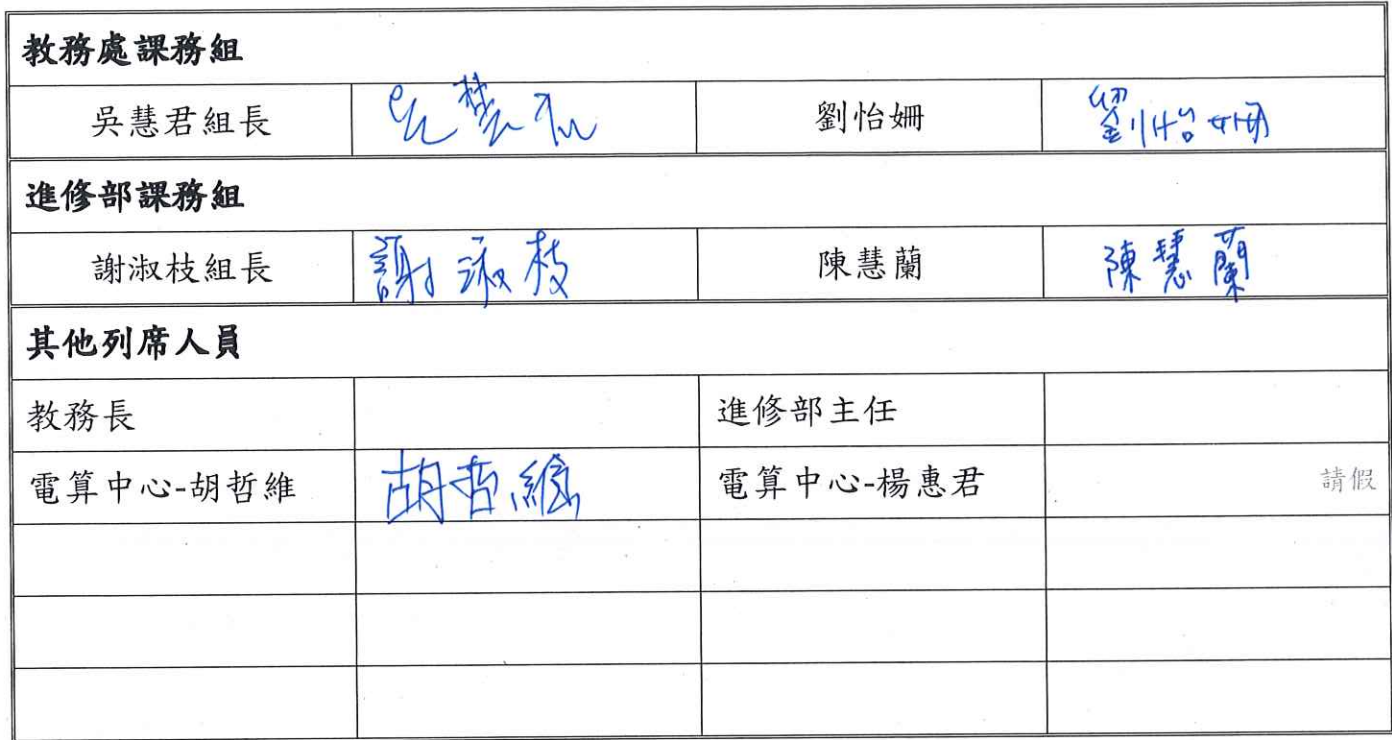 教務處課務組
吳慧君組長 吳慧君 劉怡姍 劉怡姍
進修部課務組
謝淑枝組長 謝淑枝 陳慧蘭 陳慧蘭
其他列席人員
教務長 進修部主任
電算中心-胡哲維 胡哲維 電算中心-楊惠君 請假